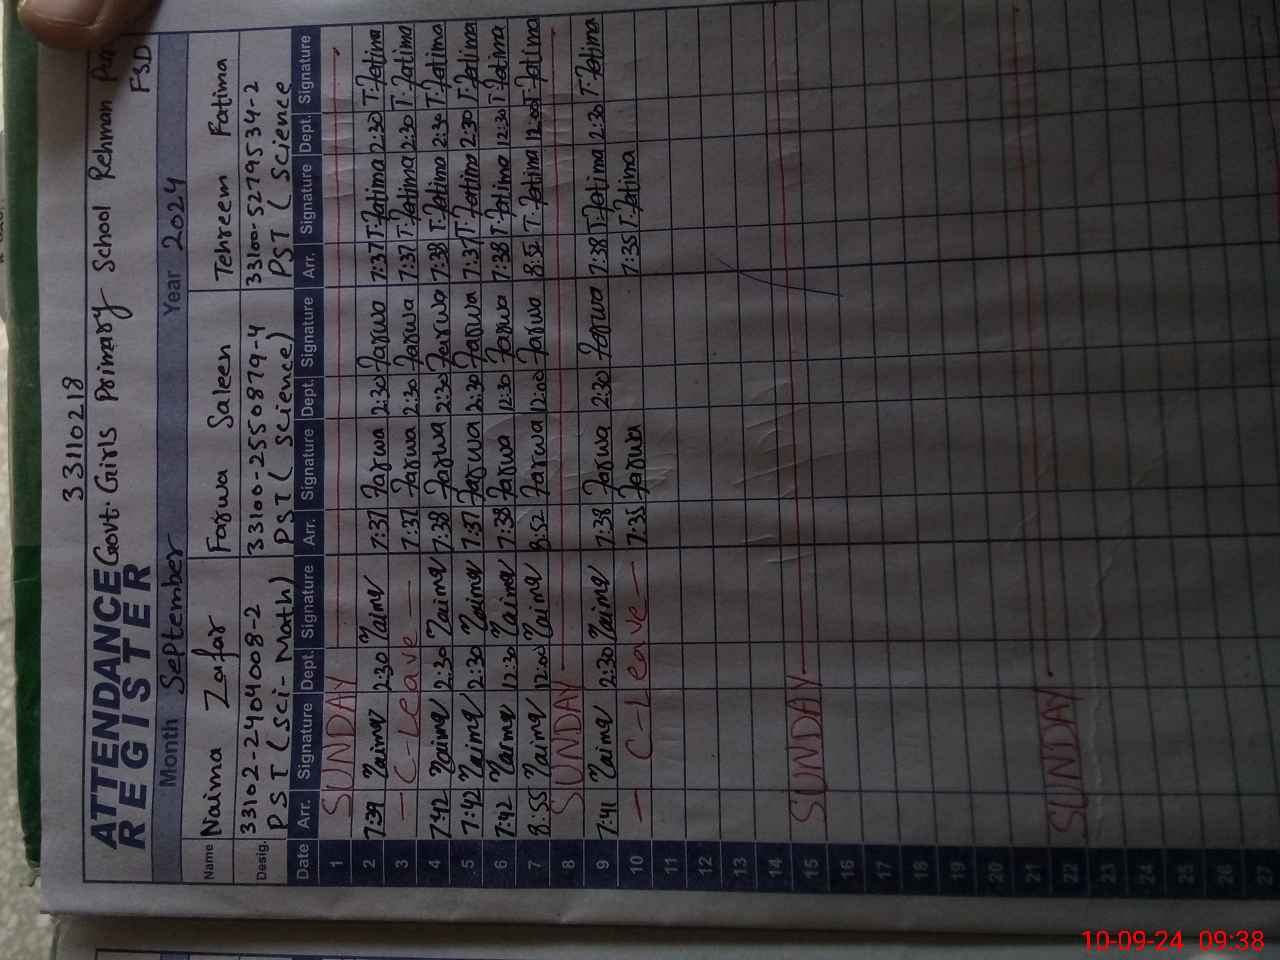 3310218
ATTENDANCE Govt. Girls Primary School Rehman
REGISTER FSD
Month September Year 2024
Name Naima Zafar Farwa Saleen Tehreem Fatima
33102-2404008-2 33100-2550879-4 33100-5279534-2
Desig. PST (Sci-Math) PST (Science) PST (Science
Date Arr. Signature Dept. Signature Arr. Signature Dept. Signature Arr. Signature Dept. Signature
1 SUNDAY
2 7:39 Naima 2:30 Naima 7:37 Farwa 2:30 Farwa 7:37 T.Fatima 2:30 T.Fatima
3 — C-Leave — 7:37 Farwa 2:30 Farwa 7:37 T.Fatima 2:30 T.Fatima
4 7:42 Naima 2:30 Naima 7:38 Farwa 2:30 Farwa 7:38 T.Fatima 2:30 T.Fatima
5 7:42 Naima 2:30 Naima 7:37 Farwa 2:30 Farwa 7:37 T.Fatima 2:30 T.Fatima
6 7:42 Naima 12:30 Naima 7:38 Farwa 12:30 Farwa 7:38 T.Fatima 12:30 T.Fatima
7 8:55 Naima 12:00 Naima 8:52 Farwa 12:00 Farwa 8:52 T.Fatima 12:00 T.Fatima
8 SUNDAY
9 7:41 Naima 2:30 Naima 7:38 Farwa 2:30 Farwa 7:38 T.Fatima 2:30 T.Fatima
10 — C-Leave — 7:35 Farwa 7:35 T.Fatima
11
12
13
14
15 SUNDAY
16
17
18
19
20
21
22 SUNDAY
23
24
25
26
27
10-09-24 09:38